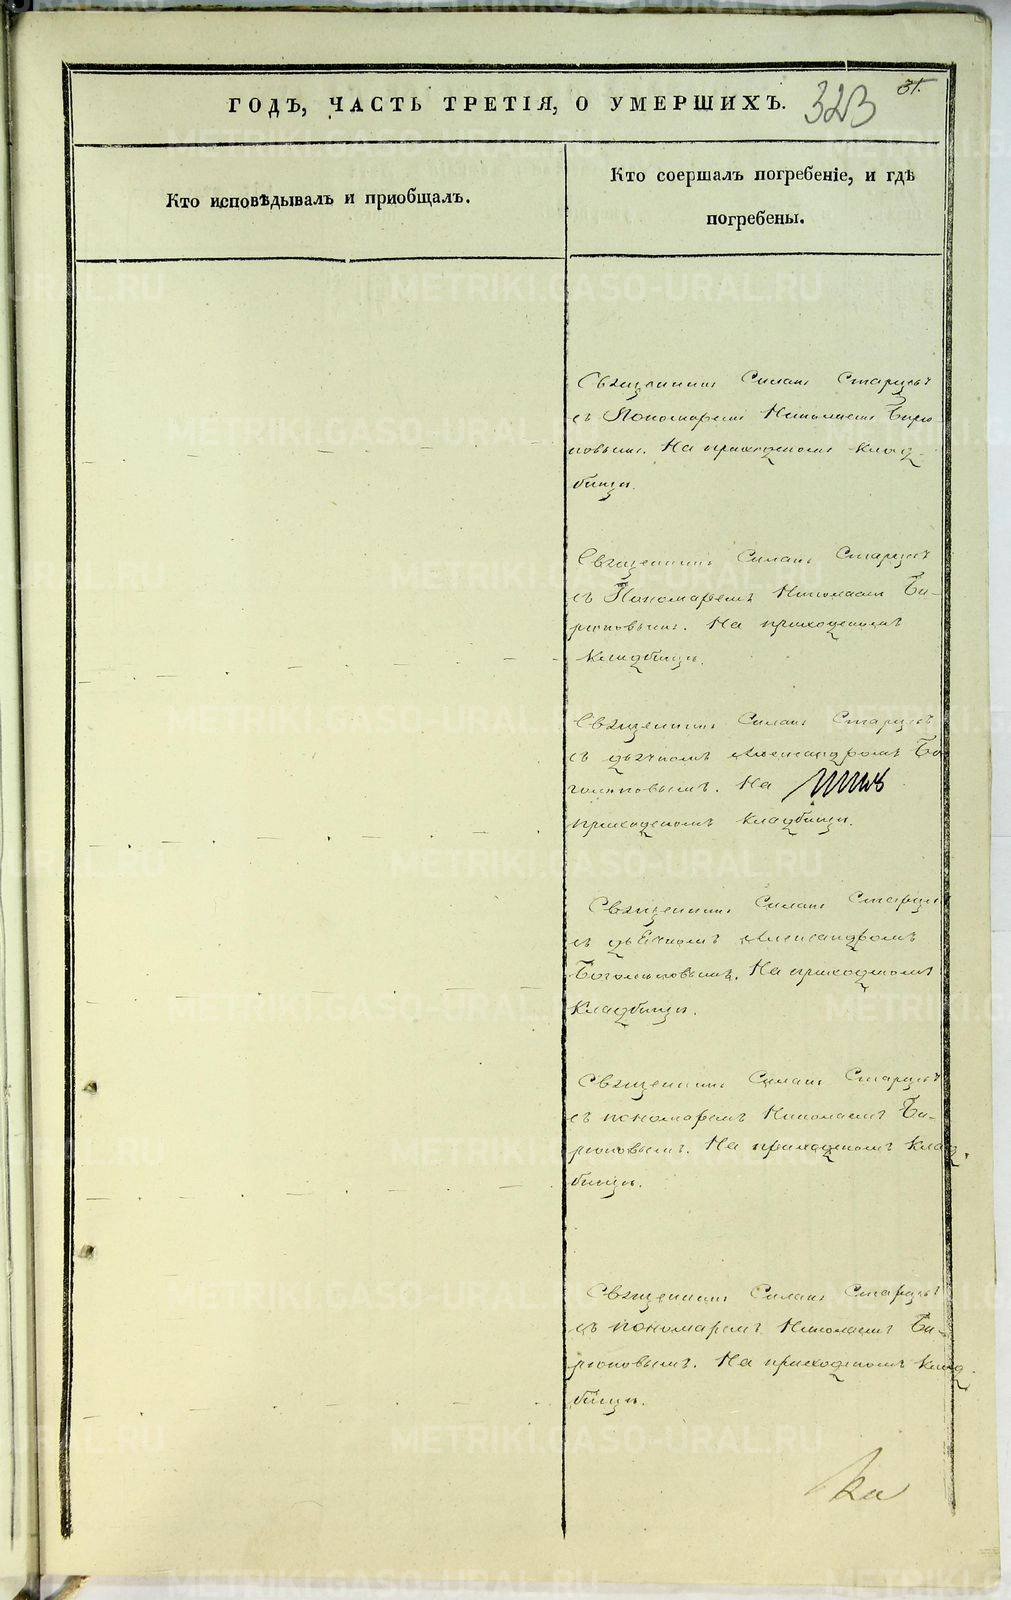 ГОДЪ, ЧАСТЬ ТРЕТІЯ, О УМЕРШИХЪ.
323
31.
Кто исповѣдывалъ и приобщалъ.
Кто соершалъ погребеніе, и гдѣ
погребены.
Священникъ Силанъ Старцевъ
съ Пономаремъ Николаемъ Бирю-
ковымъ. На приходскомъ клад-
бищѣ.
Священникъ Силанъ Старцевъ
съ Пономаремъ Николаемъ Би-
рюковымъ. На приходскомъ
кладбищѣ.
Священникъ Силанъ Старцевъ
съ дьячкомъ Александромъ Бо-
голѣповымъ. На
приходскомъ кладбищѣ.
Священникъ Силанъ Старцевъ
съ дьячкомъ Александромъ
Боголѣповымъ. На приходскомъ
кладбищѣ.
Священникъ Силанъ Старцевъ
съ пономаремъ Николаемъ Би-
рюковымъ. На приходскомъ клад-
бищѣ.
Священникъ Силанъ Старцевъ
съ пономаремъ Николаемъ Би-
рюковымъ. На приходскомъ клад-
бищѣ.
METRIKI.GASO-URAL.RU